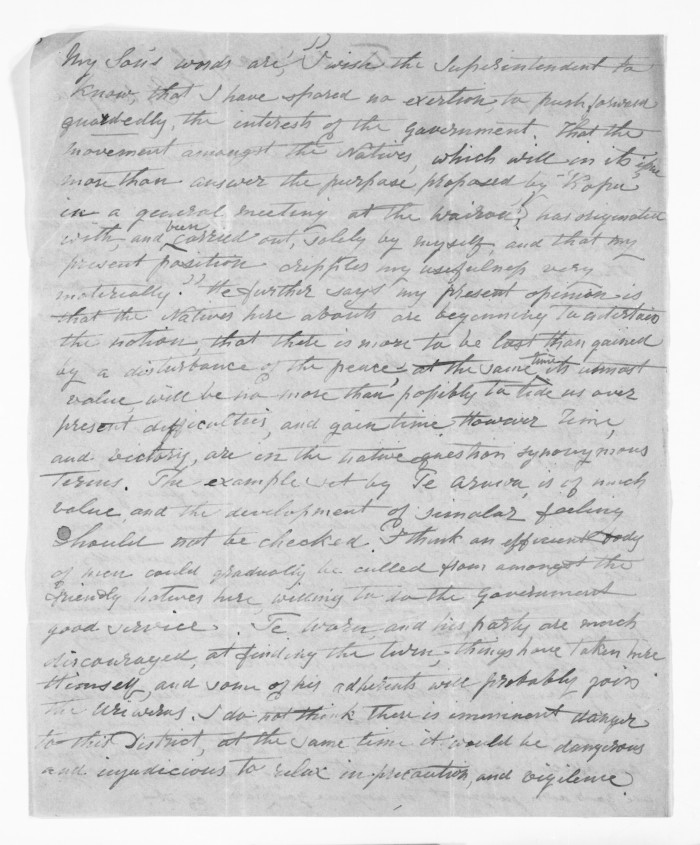 My Son's words are, "I wish the Superintendent to
know, that I have spared no exertion, to push forward
guardedly, the interests of the Government. That the
movement amongst the Natives, which will in its issue
more than answer the purpose proposed by "Kopu
in a general meeting at the Wairoa", has originated
with, and been carried out, solely by myself, and that my
present position cripples my usefulness very
materially." He further says "my present opinion is
that the Natives here abouts are beginning to entertain
the notion, that there is more to be lost than gained
by a disturbance of the peace, at the same time its utmost
value, will be no more than, possibly to tide us over
present difficulties, and gain time. However Time,
and victory, are in the native question synonymous
terms. The example set by Te Arawa, is of much
value, and the development of similar feeling
should not be checked. I think an efficient body
of men could gradually be culled from amongst the
friendly natives here, willing to do the Government
good service. Te Waru, and his party are much
discouraged, at finding the turn, things have taken here
Himself, and some of his adherents will probably join
the Uriweras. I do not think there is imminent danger
to this District, at the same time it would be dangerous
and injudicious to relax in precaution, and vigilence.